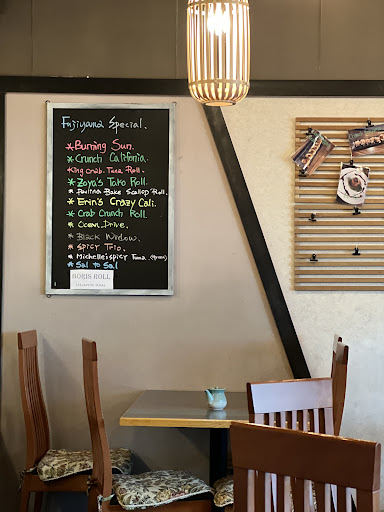 Fujiyama Special.
*Burning Sun.
*Crunch Califonia.
*King Crab. Tuna Roll.
*Zoya's Tako Roll.
*Paulina Bake Scallop Roll.
*Erin's Crazy Cali.
*Crab Crunch Roll.
*Ocean Drive.
*Black Window.
*Spicy Trio.
*Michelle's spicy Tuna
*Sal to Sal
BORIS ROLL